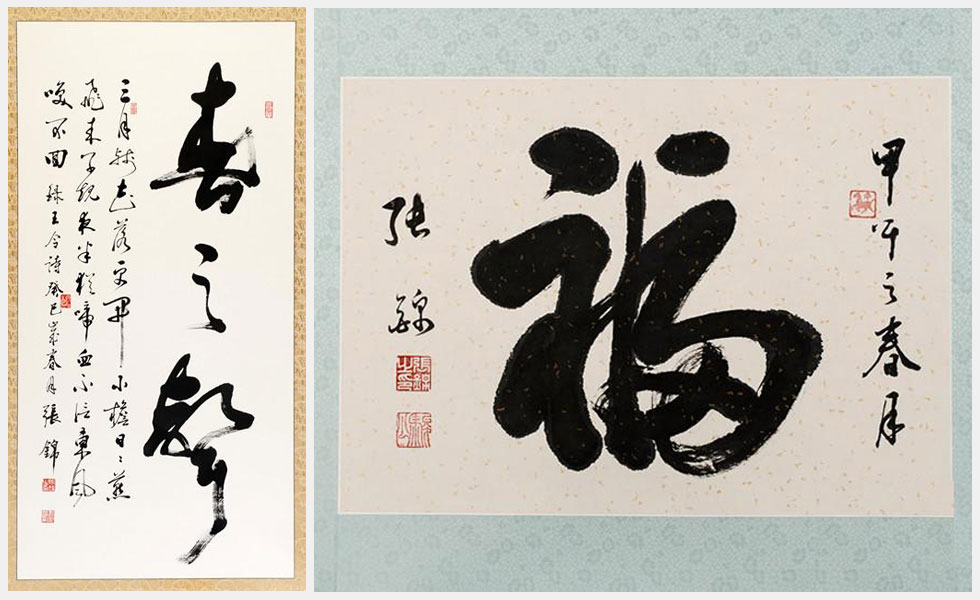 春之聲
三月殘花落更開小檐日〻燕
飛來子規夜半猶啼血不信東風
喚不回 錄王令詩癸巳歲春月張錦
甲午之春月
福
張錦
張錦之印